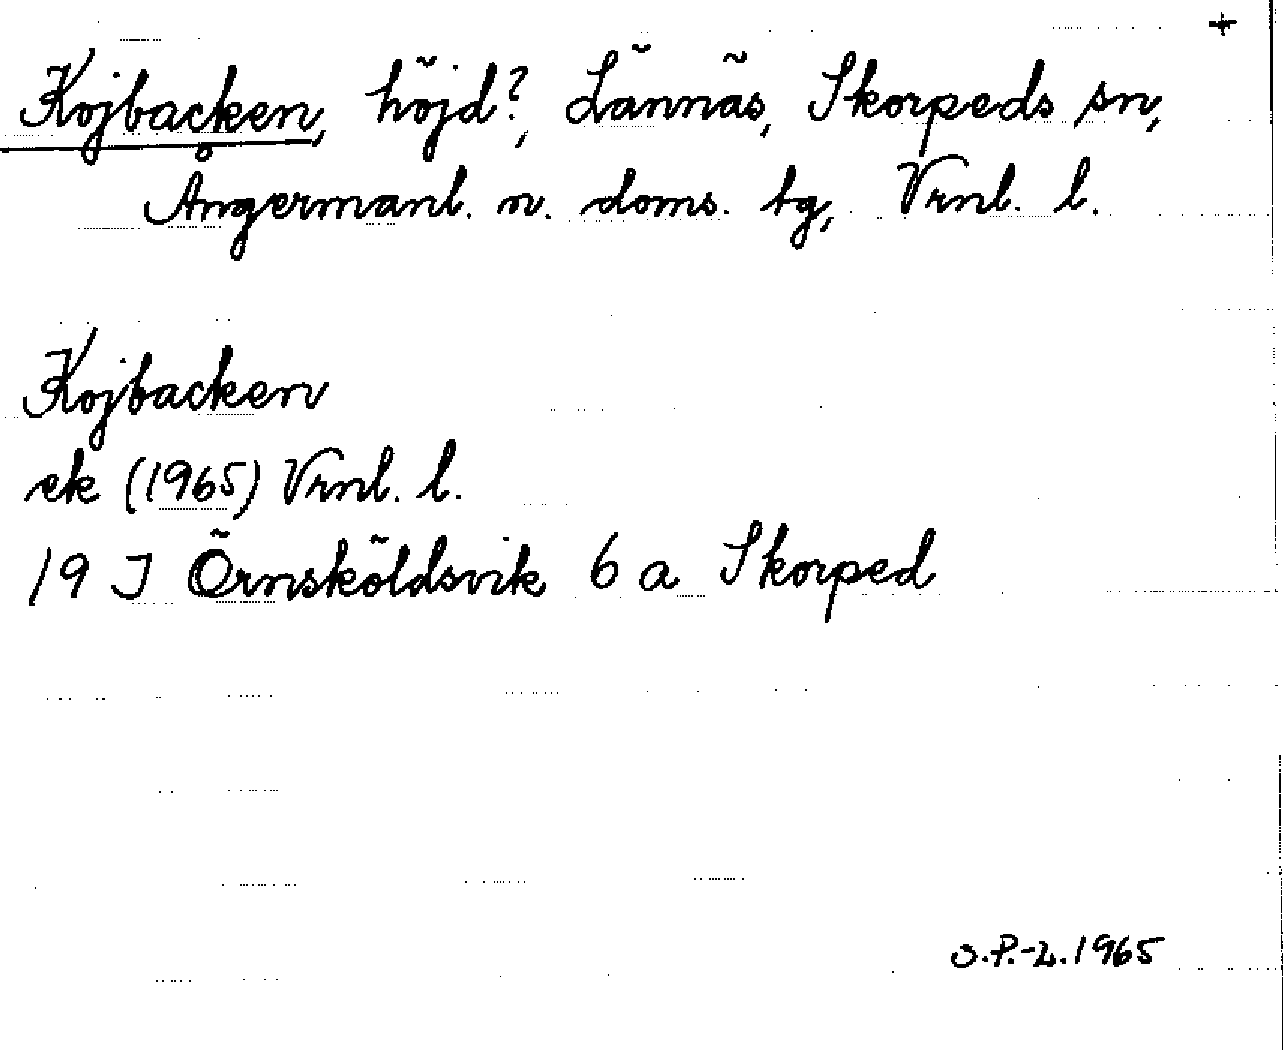 +
Kojbacken, höjd?, Lännäs, Skorpeds sn,
Ångermanl. n. doms. tg, Vrnl. l.
Kojbacken
ek (1965) Vrnl. l.
19 J Örnsköldsvik 6 a Skorped
O.P.-L. 1965